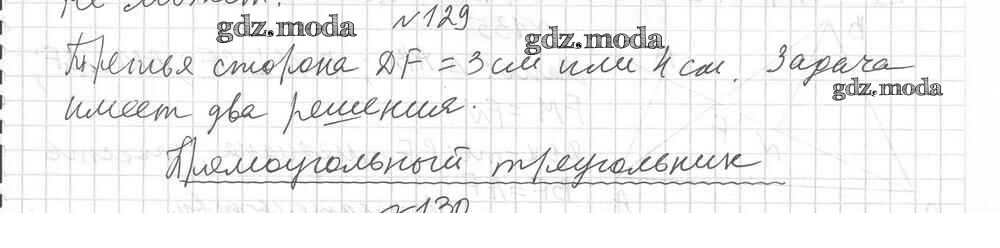 не может.
№129
gdz.moda
gdz.moda
Третья сторона DF = 3 см или 4 см. Задача
gdz.moda
имеет два решения.
Прямоугольный треугольник
№130